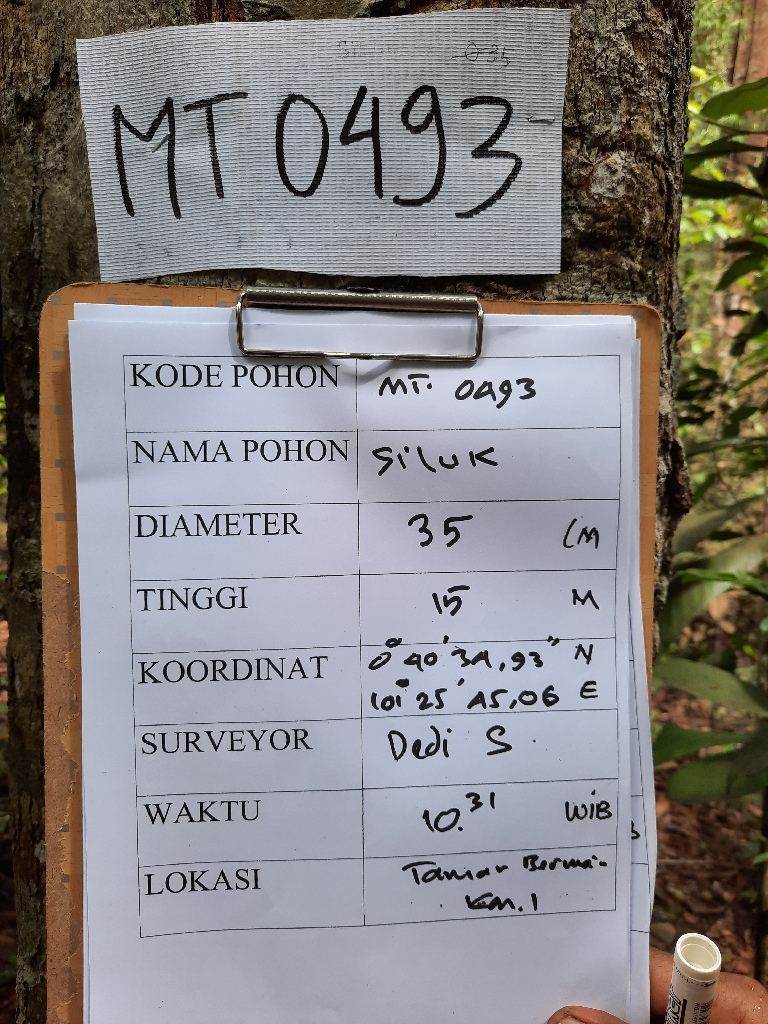 MT 0493
KODE POHON MT. 0493
NAMA POHON SiLUK
DIAMETER 35 CM
TINGGI 15 M
KOORDINAT 0° 40' 34,93" N
101° 25' 45,06 E
SURVEYOR Dedi S.
WAKTU 10.31 WIB
LOKASI Taman Bermai-
Km. 1